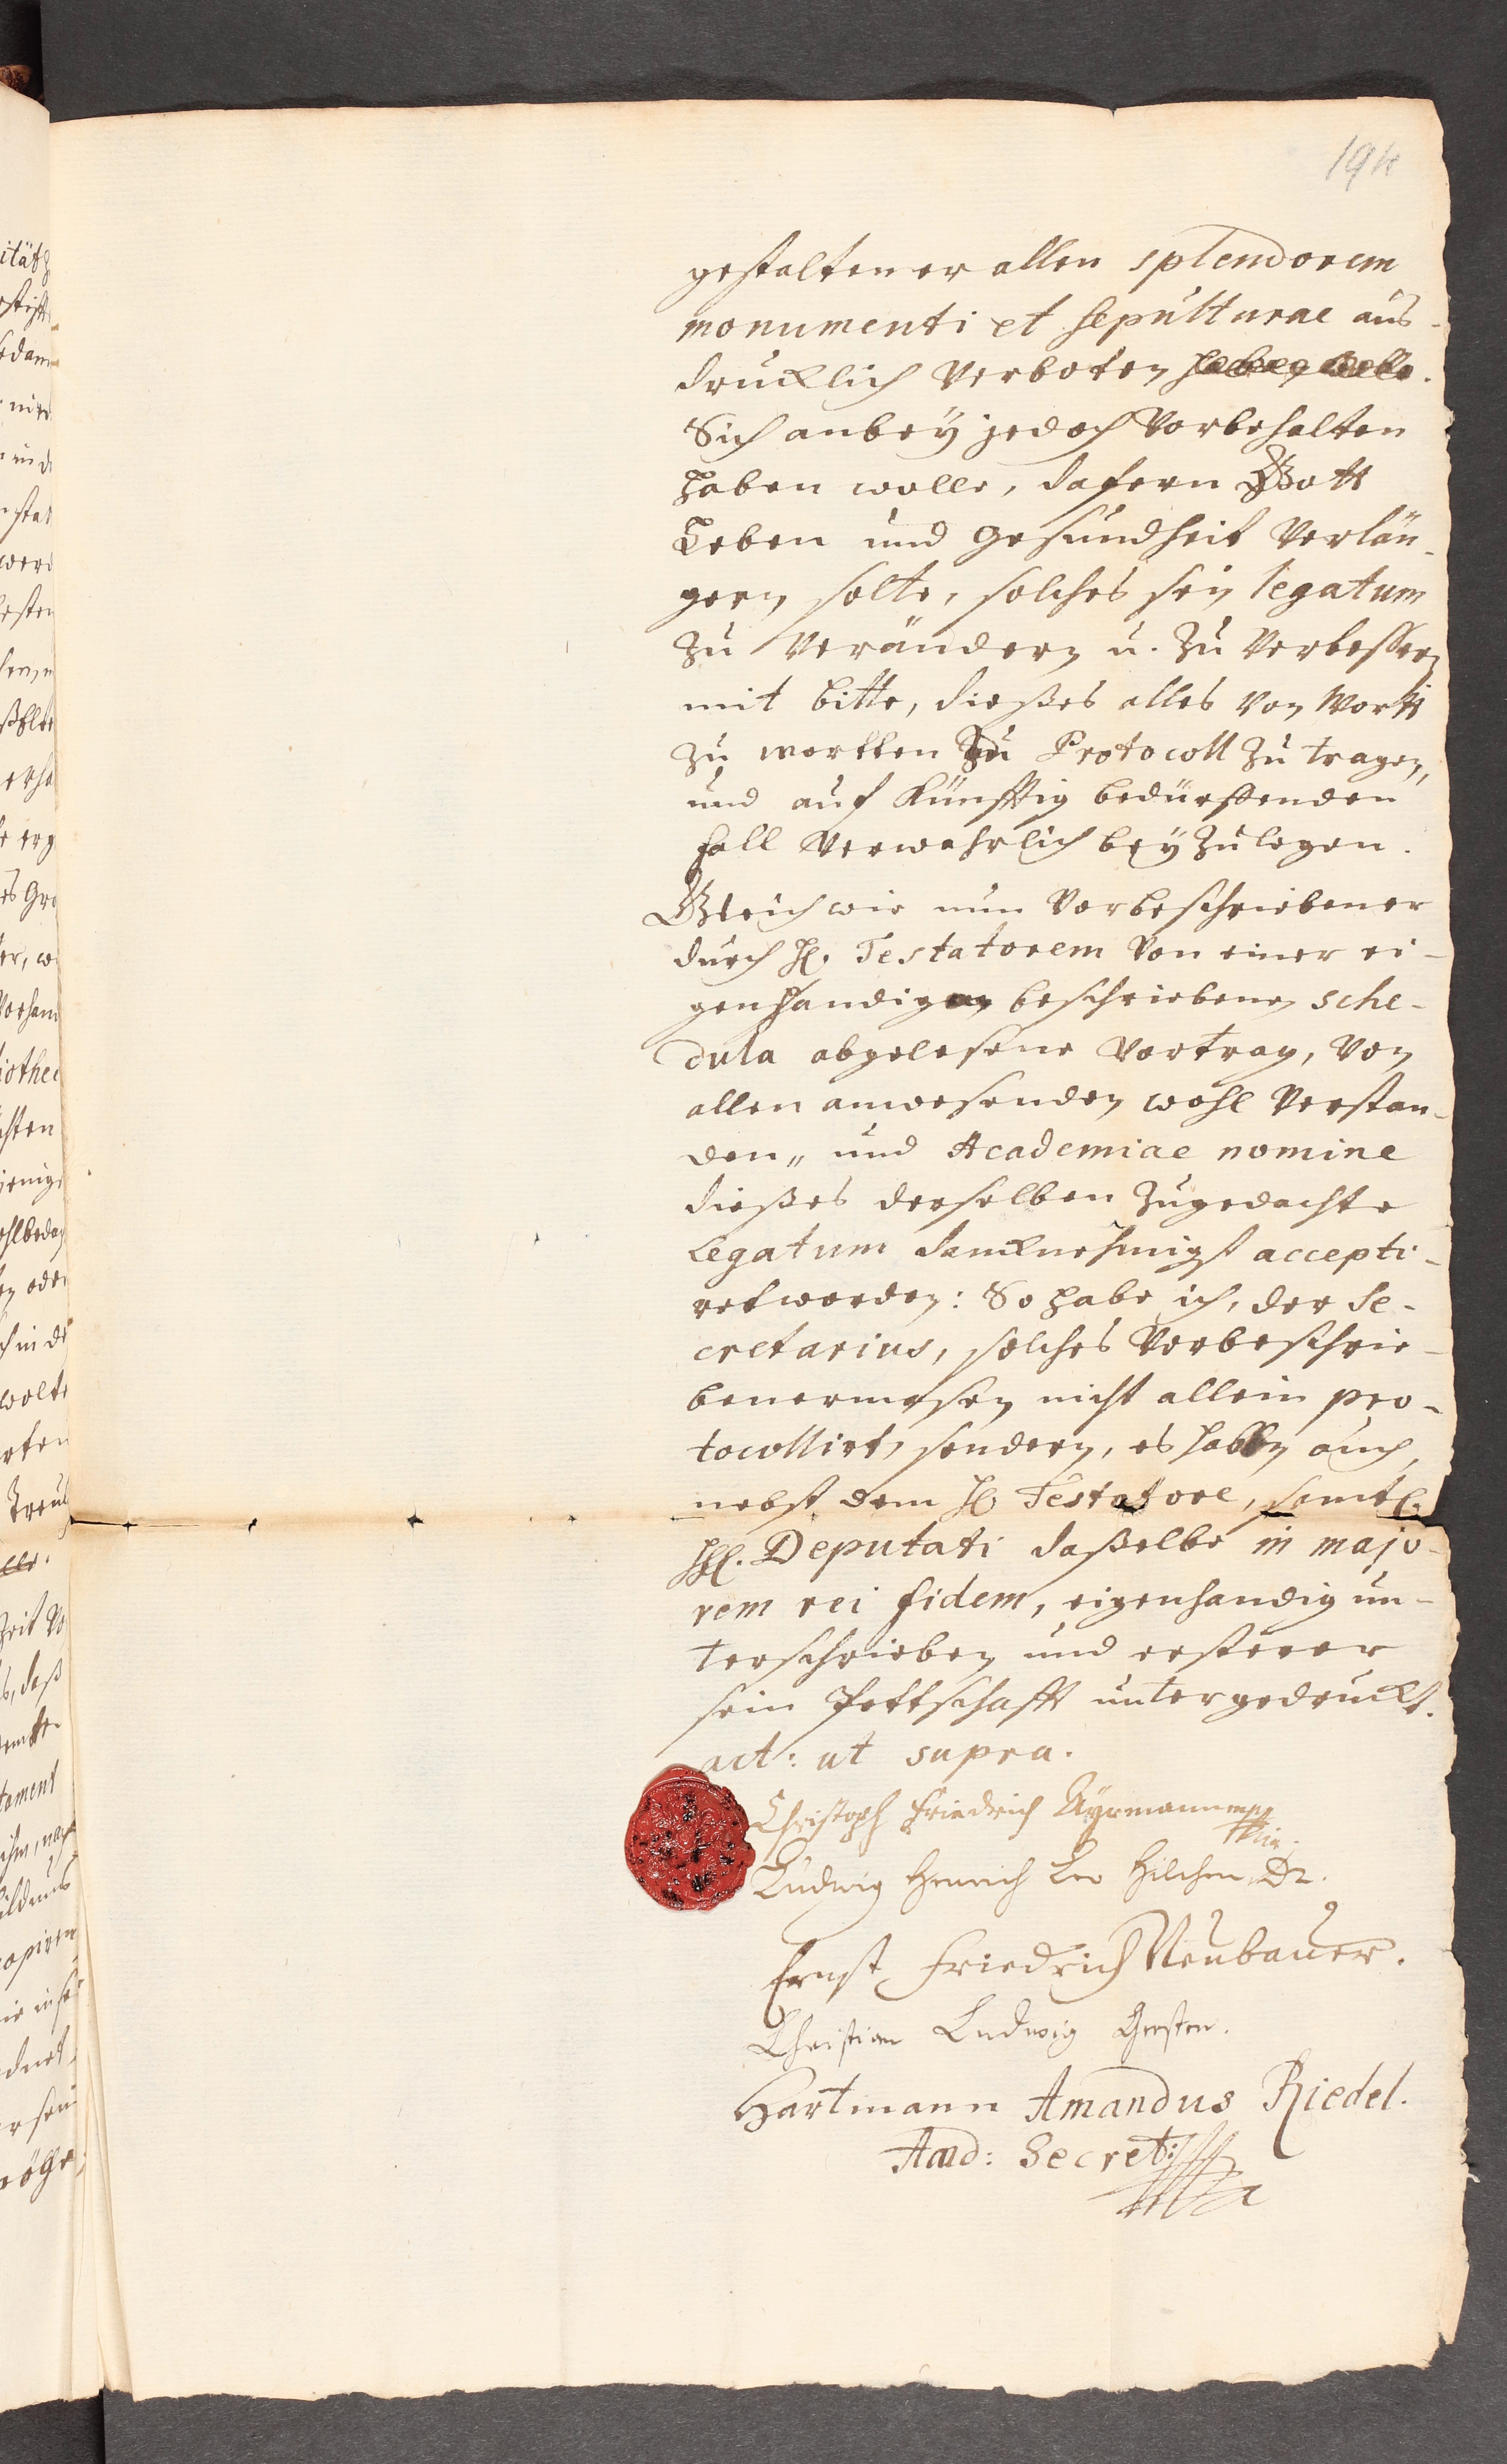 194
gestalten er allen splendorem
monumenti et sepulturae aus-
drucklich verboten haben wolle.
Sich anbey jedoch vorbehalten
haben wolle, dafern Gott
Leben und Gesundheit verlän-
gern solte, solches sein legatum
zu verändern u. zu verbessern
mit bitte, dießes alles von Wort
zu wortten zu Protocoll zu tragen,
und auf künfftig bedürffenden
fall verwahrlich beyzulegen.
Gleich wie nun vorbeschriebener
durch H. Testatorem von einer ei-
genhandig beschriebenen sche-
dula abgelesene Vortrag, von
allen anwesenden wohl verstan-
den,, und Academiae nomine
dießes derselben zugedachte
Legatum danknehmigst accepti-
ret worden: So habe ich, der Se-
cretarius, solches vorbeschrie-
benermasen nicht allein pro-
tocollirt, sondern, es haben auch,
nebst dem H. Testatore, samtl.
HH. Deputati daßelbe in majo-
rem rei fidem, eigenhandig un-
terschrieben und ersterer
sein Pettschafft untergedruckt.
act: ut supra.
Christoph Friedrich Ayrmann mpp
Ludwig Henrich Leo Hilchen, Dr.
Ernst Friedrich Neubauer.
Christian Ludwig Gersten.
Hartmann Amandus Riedel.
Acad: Secret: